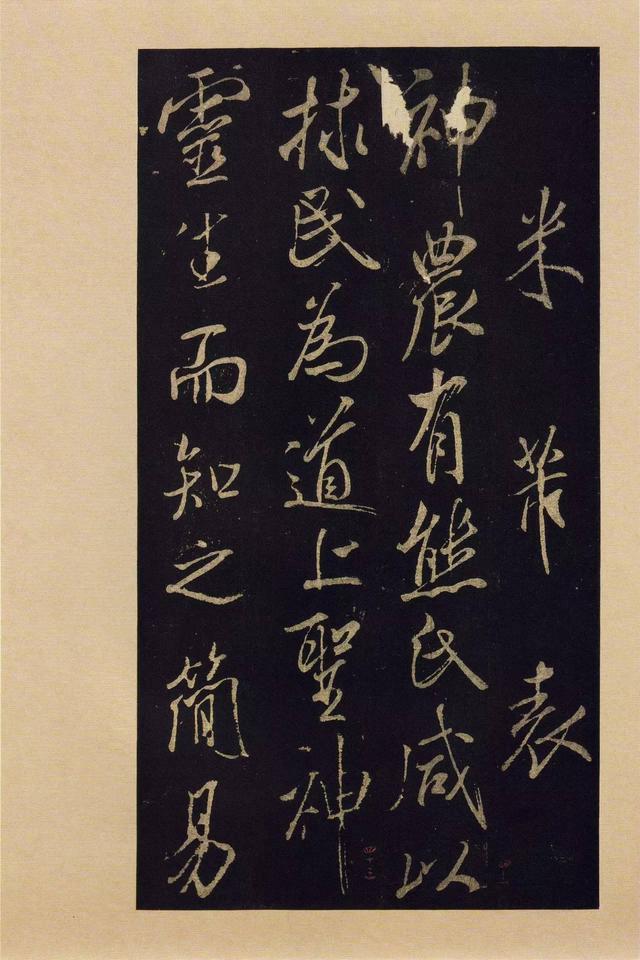 米芾表
神農有熊氏咸以
捄民為道上聖神
靈生而知之簡易
四十二